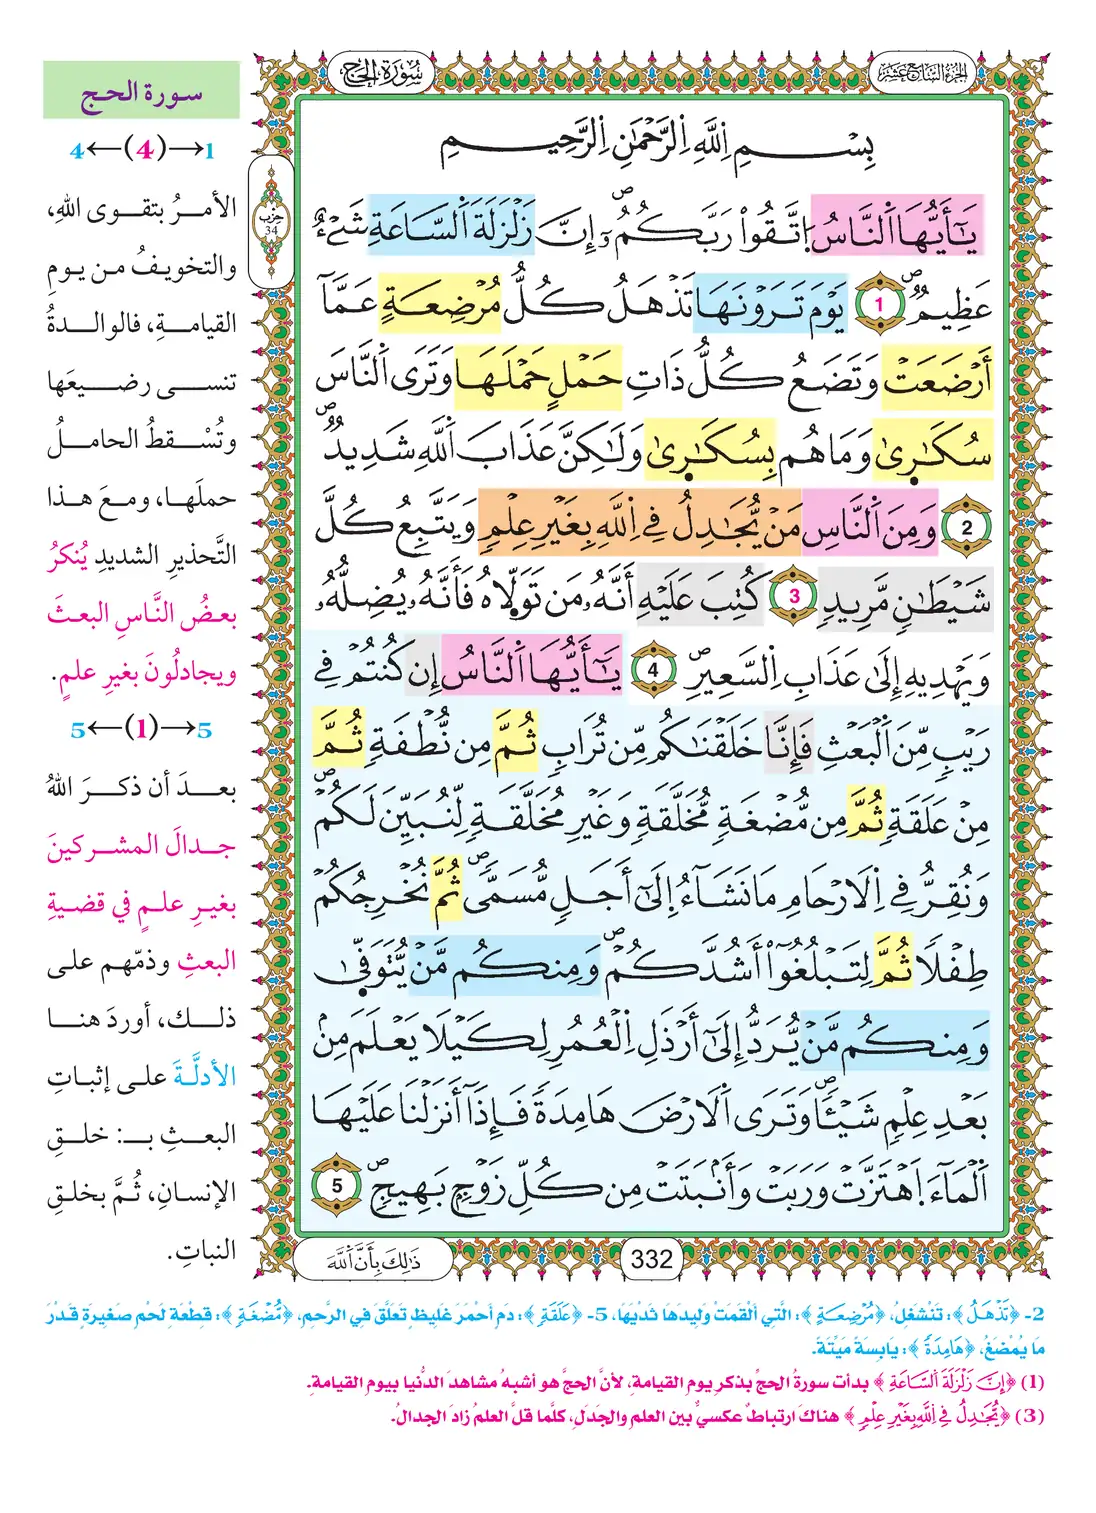 الجزء السابع عشر
سورة الحج
بِسْمِ اِ۬للَّهِ اِ۬لرَّحْمَٰنِ اِ۬لرَّحِيمِ
يَٰٓأَيُّهَا اَ۬لنَّاسُ اُ۪تَّقُواْ رَبَّكُمُۥٓ إِنَّ زَلْزَلَةَ اَ۬لسَّاعَةِ شَےْءٌ
عَظِيمٞ 1 يَوْمَ تَرَوْنَهَا تَذْهَلُ كُلُّ مُرْضِعَةٍ عَمَّآ
أَرْضَعَتْ وَتَضَعُ كُلُّ ذَاتِ حَمْلٍ حَمْلَهَا وَتَرَى اَ۬لنَّاسَ
سُكَٰر۪ىٰ وَمَا هُم بِسُكَٰر۪ىٰ وَلَٰكِنَّ عَذَابَ اَ۬للَّهِ شَدِيدٞ
2 وَمِنَ اَ۬لنَّاسِ مَنْ يُّجَٰدِلُ فِے اِ۬للَّهِ بِغَيْرِ عِلْمٍ وَيَتَّبِعُ كُلَّ
شَيْطَٰنٍ مَّرِيدٍ 3 كُتِبَ عَلَيْهِ أَنَّهُۥ مَن تَوَلَّاهُ فَأَنَّهُۥ يُضِلُّهُۥ
وَيَهْدِيهِ إِلَىٰ عَذَابِ اِ۬لسَّعِيرِ 4 يَٰٓأَيُّهَا اَ۬لنَّاسُ إِن كُنتُمْ فِے
رَيْبٍ مِّنَ اَ۬لْبَعْثِ فَإِنَّا خَلَقْنَٰكُم مِّن تُرَابٍ ثُمَّ مِن نُّطْفَةٍ ثُمَّ
مِنْ عَلَقَةٍ ثُمَّ مِن مُّضْغَةٍ مُّخَلَّقَةٍ وَغَيْرِ مُخَلَّقَةٍ لِّنُبَيِّنَ لَكُمْ
وَنُقِرُّ فِے اِ۬لَارْحَامِ مَا نَشَآءُ اِ۪لَىٰٓ أَجَلٍ مُّسَمّىٗ ثُمَّ نُخْرِجُكُمْ
طِفْلًا ثُمَّ لِتَبْلُغُوٓاْ أَشُدَّكُمْ وَمِنكُم مَّنْ يُّتَوَفّ۪ىٰ
وَمِنكُم مَّنْ يُّرَدُّ إِلَىٰٓ أَرْذَلِ اِ۬لْعُمُرِ لِكَيْلَا يَعْلَمَ مِنۢ
بَعْدِ عِلْمٍ شَيْـٔاٗ وَتَرَى اَ۬لَارْضَ هَامِدَةٗ فَإِذَآ أَنزَلْنَا عَلَيْهَا
اَ۬لْمَآءَ اَ۪هْتَزَّتْ وَرَبَتْ وَأَنۢبَتَتْ مِن كُلِّ زَوْجٍ بَهِيجٍ 5
332
ذَٰلِكَ بِأَنَّ اَ۬للَّهَ
حزب
34
سورة الحج
1→(4)←4
الأمرُ بتقوى اللهِ،
والتخويفُ من يومِ
القيامةِ، فالوالدةُ
تنسى رضيعَها
وتُسْقطُ الحاملُ
حملَها، ومعَ هذا
التَّحذيرِ الشديدِ يُنكرُ
بعضُ النَّاسِ البعثَ
ويجادلُونَ بغيرِ علمٍ.
5→(1)←5
بعدَ أن ذكرَ اللهُ
جدالَ المشركينَ
بغيرِ علمٍ في قضيةِ
البعثِ وذمّهم على
ذلك، أوردَ هنا
الأدلَّةَ على إثباتِ
البعثِ بـ: خلقِ
الإنسانِ، ثُمَّ بخلقِ
النباتِ.
2- ﴿تَذْهَلُ﴾: تَنْشَغِلُ، ﴿مُرْضِعَةٍ﴾: الَّتِي أَلْقَمَتْ وَلِيدَهَا ثَدْيَهَا، 5- ﴿عَلَقَةٍ﴾: دَمٍ أَحْمَرَ غَلِيظٍ تَعَلَّقَ فِي الرَّحِمِ، ﴿مُّضْغَةٍ﴾: قِطْعَةِ لَحْمٍ صَغِيرَةٍ قَدْرَ
مَا يُمْضَغُ، ﴿هَامِدَةٗ﴾: يَابِسَةً مَيِّتَةً.
(1) ﴿إِنَّ زَلْزَلَةَ اَ۬لسَّاعَةِ﴾ بدأت سورةُ الحجِّ بذكرِ يومِ القيامةِ، لأنَّ الحجَّ هو أشبهُ مشاهدَ الدُّنيا بيومِ القيامةِ.
(3) ﴿يُّجَٰدِلُ فِے اِ۬للَّهِ بِغَيْرِ عِلْمٍ﴾ هناكَ ارتباطٌ عكسيٌّ بين العلمِ والجدَلِ، كلَّما قلَّ العلمُ زادَ الجدالُ.